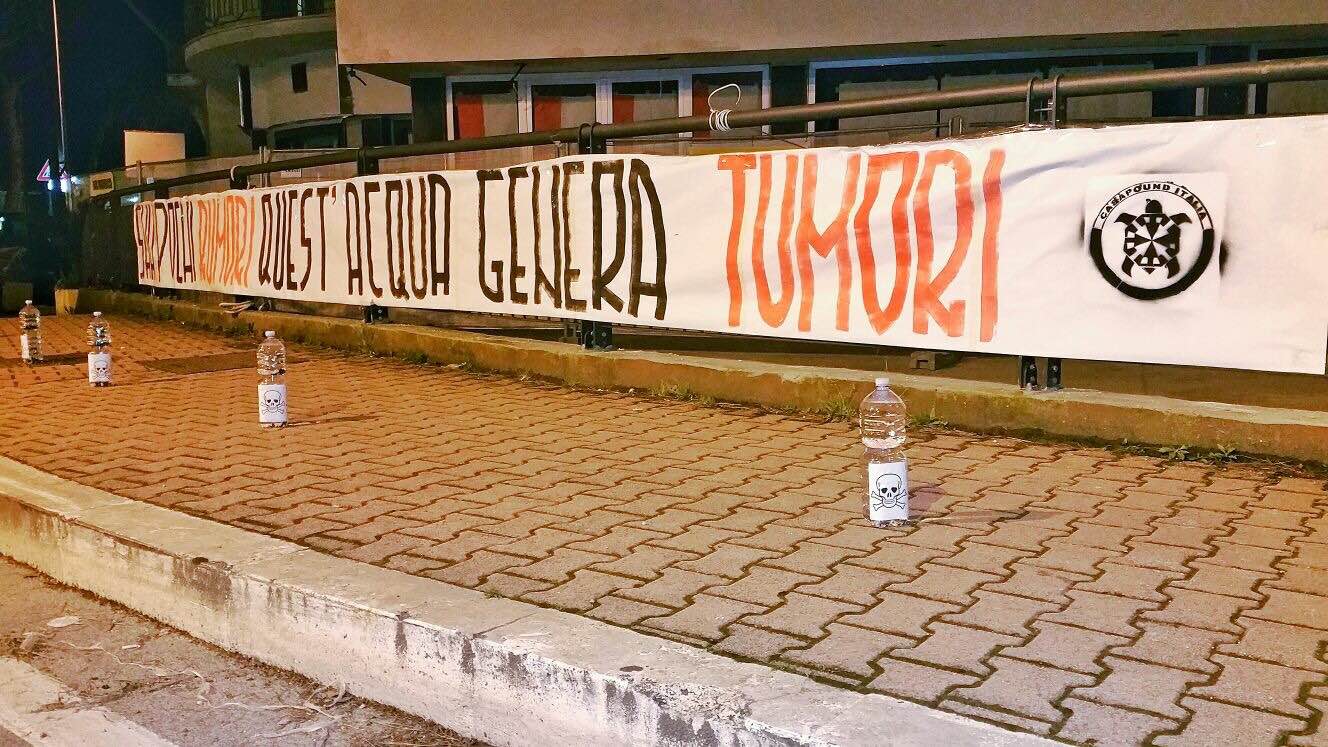 POCHI RUMORI QUEST'ACQUA GENERA TUMORI
CASAPOUND ITALIA